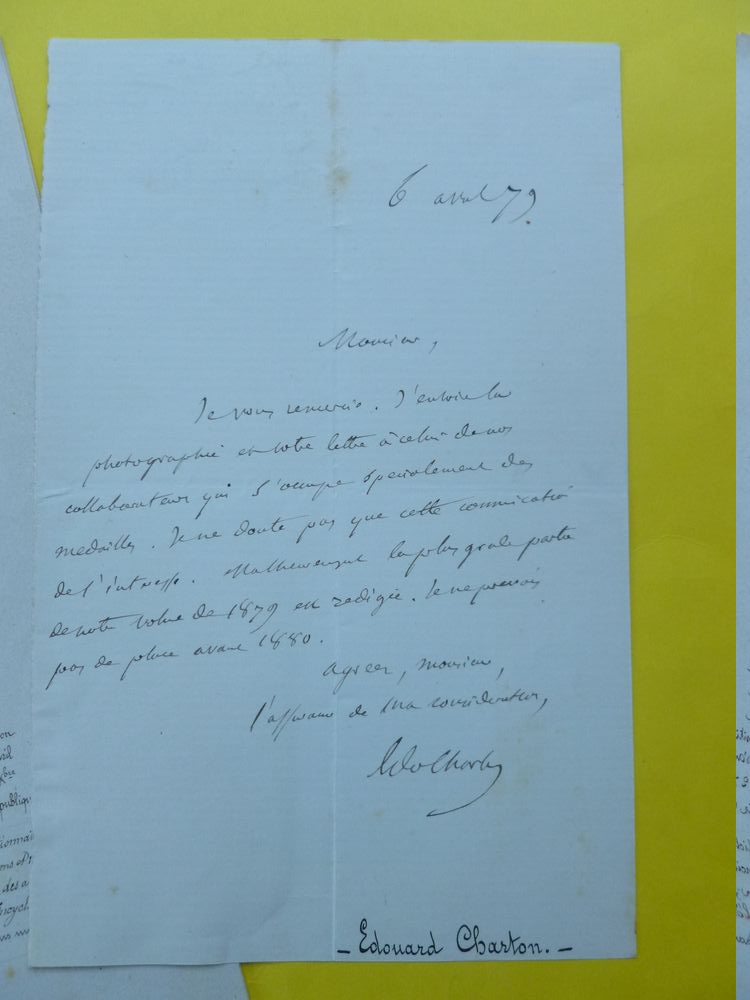 6 avril 79
Monsieur,
Je vous remercie. J'envoie la
photographie et votre lettre à celui de nos
collaborateurs qui s'occupe spécialement des
médailles. Je ne doute pas que cette communication
de l'intéresse. Malheureusement la plus grande partie
de notre volume de 1879 est rédigée. Je ne prévois
pas de place avant 1880.
Agréez, monsieur,
l'assurance de ma considération,
Ed Charton
- Edouard Charton. -